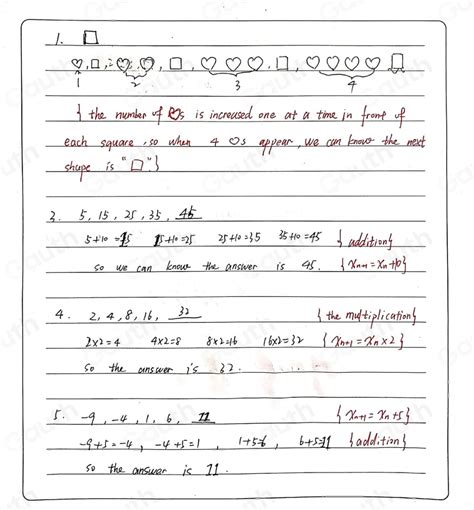 1. □
♡, □, ♡♡, □, ♡♡♡, □, ♡♡♡♡ □
1 2 3 4
{ the number of ♡s is increased one at a time in front of
each square, so when 4 ♡s appear, we can know the next
shape is "□".}
2. 5, 15, 25, 35, 45
5+10=15 15+10=25 25+10=35 35+10=45 { addition}
so we can know the answer is 45. { Xn+1 = Xn+10}
4. 2, 4, 8, 16, 32 { the multiplication}
2x2=4 4x2=8 8x2=16 16x2=32 { Xn+1 = Xn x 2 }
so the answer is 32.
5. -9, -4, 1, 6, 11 { Xn+1 = Xn +5}
-9+5=-4, -4+5=1, 1+5=6, 6+5=11 { addition}
so the answer is 11.